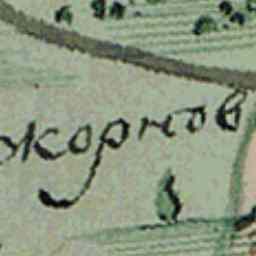 жорновъ